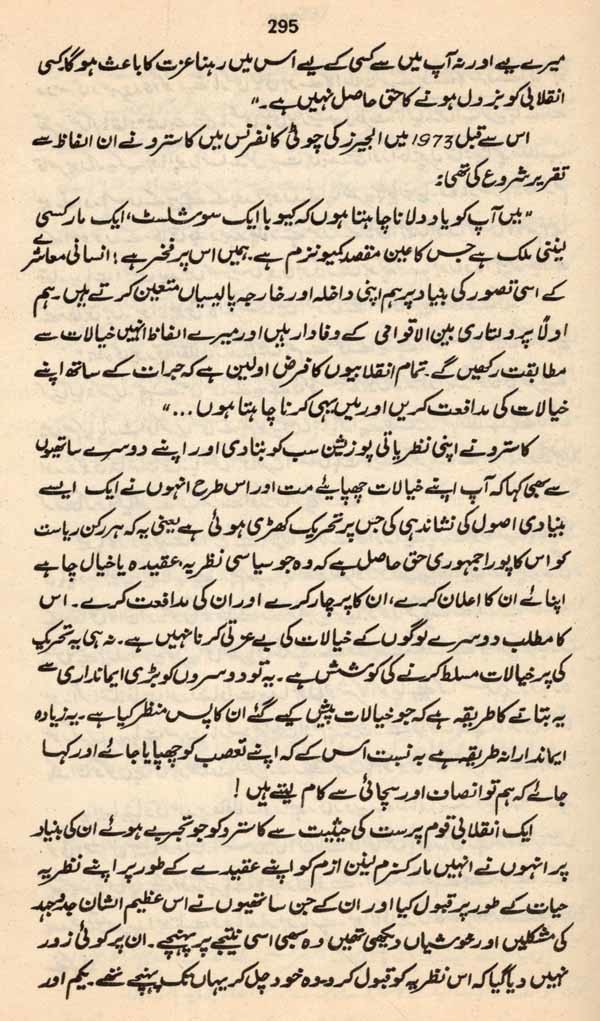 295
میرے لیے اور نہ آپ میں سے کسی کے لیے اس میں رہنا عزت کا باعث ہوگا۔ کسی
انقلابی کو بزدل ہونے کا حق حاصل نہیں ہے۔"
اس سے قبل 1973 میں الجیرز کی چوٹی کانفرنس میں کاسترو نے ان الفاظ سے
تقریر شروع کی تھی:
"میں آپ کو یاد دلانا چاہتا ہوں کہ کیوبا ایک سوشلسٹ، ایک مارکسی
لیننی ملک ہے جس کا عین مقصد کمیونزم ہے۔ ہمیں اس پر فخر ہے! انسانی معاشرے
کے اسی تصور کی بنیاد پر ہم اپنی داخلہ اور خارجہ پالیسیاں متعین کرتے ہیں۔ ہم
اولاً پرولتاری بین الاقوامی کے وفادار ہیں اور میرے الفاظ انہیں خیالات سے
مطابقت رکھیں گے۔ تمام انقلابیوں کا فرض اولین ہے کہ جرات کے ساتھ اپنے
خیالات کی مدافعت کریں اور میں یہی کرنا چاہتا ہوں ..."
کاسترو نے اپنی نظریاتی پوزیشن سب کو بتا دی اور اپنے دوسرے ساتھیوں
سے بھی کہا کہ آپ اپنے خیالات چھپایئے مت اور اس طرح انہوں نے ایک ایسے
بنیادی اصول کی نشاندہی کی جس پر تحریک کھڑی ہوئی ہے یعنی یہ کہ ہر رکن ریاست
کو اس کا پورا جمہوری حق حاصل ہے کہ وہ جو سیاسی نظریہ، عقیدہ یا خیال چاہے
اپنائے ان کا اعلان کرے، ان کا پرچار کرے اور ان کی مدافعت کرے۔ اس
کا مطلب دوسرے لوگوں کے خیالات کی بے عزتی کرنا نہیں ہے۔ نہ ہی یہ تحریک
کی پر خیالات مسلط کرنے کی کوشش ہے۔ یہ تو دوسروں کو بڑی ایمانداری سے
یہ بتانے کا طریقہ ہے کہ جو خیالات پیش کیے گئے ان کا پس منظر کیا ہے۔ یہ زیادہ
ایماندارانہ طریقہ ہے بہ نسبت اس کے کہ اپنے تعصب کو چھپایا جائے اور کہا
جائے کہ ہم تو انصاف اور سچائی سے کام لیتے ہیں!
ایک انقلابی قوم پرست کی حیثیت سے کاسترو کو جو تجربے ہوئے ان کی بنیاد
پر انہوں نے انہیں مارکسزم لینن ازم کو اپنے عقیدے کے طور پر اپنے نظریہ
حیات کے طور پر قبول کیا اور ان کے جن ساتھیوں نے اس عظیم الشان جدوجہد
کی مشکلیں اور خوشیاں دیکھی تھیں وہ سبھی اسی نتیجے پر پہنچے۔ ان پر کوئی زور
نہیں دیا گیا کہ اس نظریہ کو قبول کرو۔ وہ خود چل کر یہاں تک پہنچے تھے۔ یکم اور